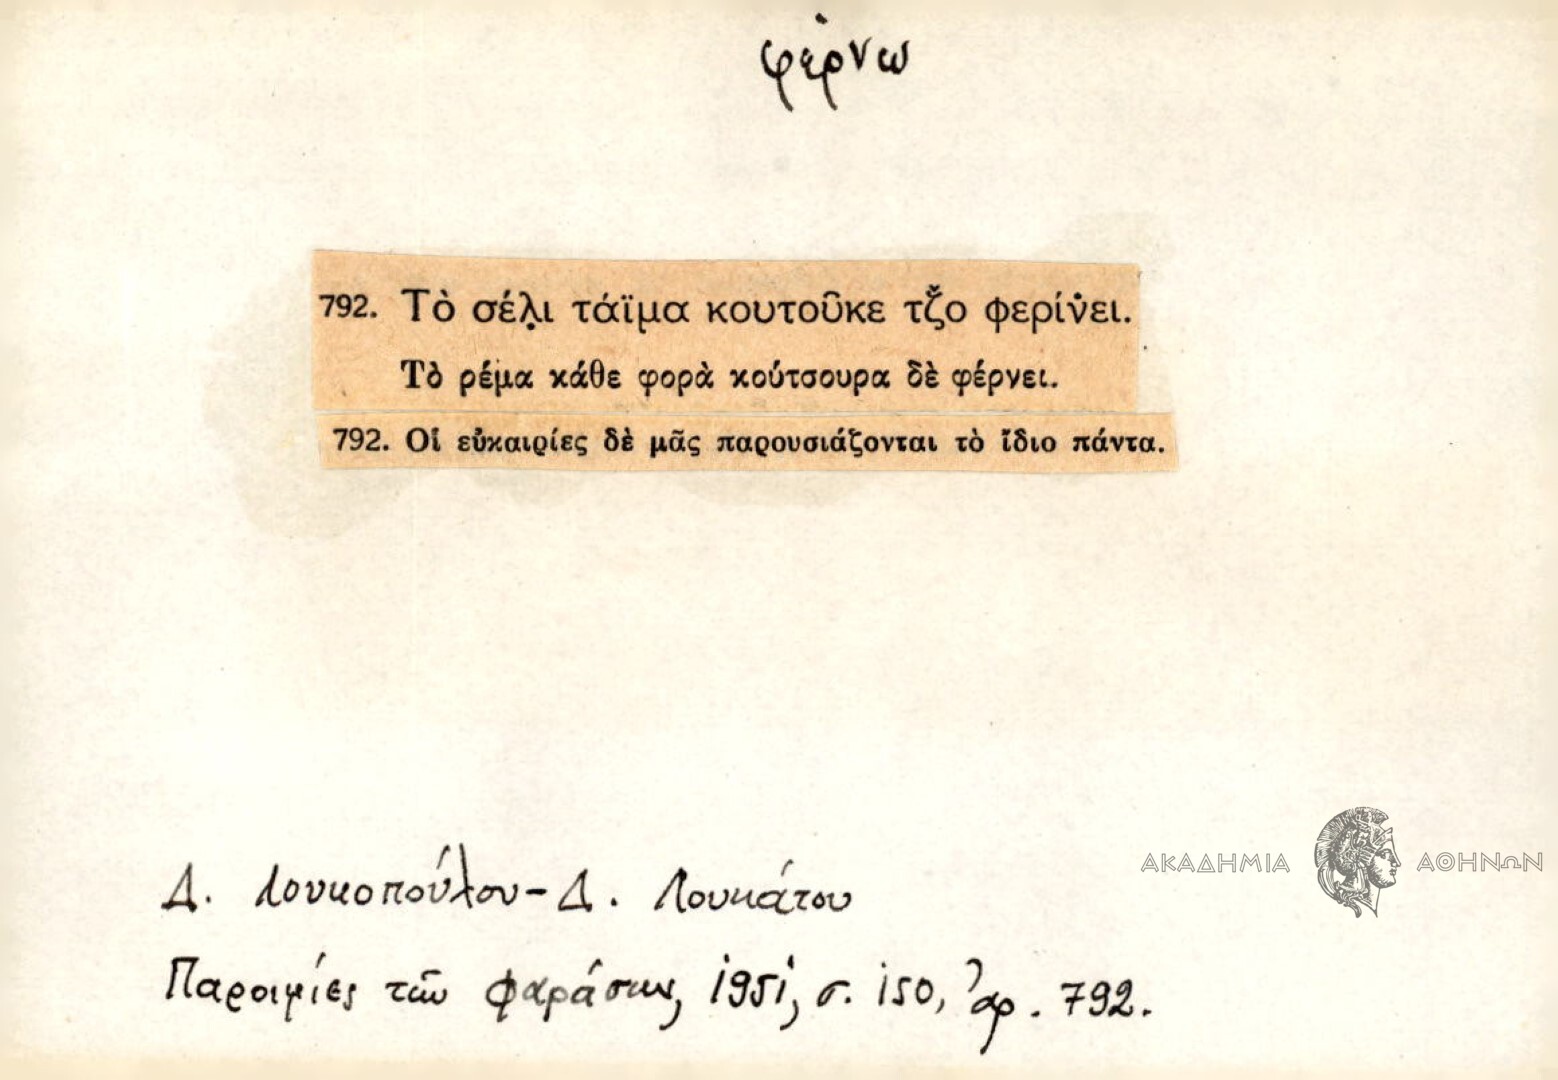 φέρνω
792. Τὸ σέλ̣ι τάϊμα κουτοῦκε τζ̌ο φερίν̇ει.
Τὸ ρέμα κάθε φορὰ κούτσουρα δὲ φέρνει.
792. Οἱ εὐκαιρίες δὲ μᾶς παρουσιάζονται τὸ ἴδιο πάντα.
ΑΚΑΔΗΜΙΑ ΑΘΗΝΩΝ
Δ. Λουκοπούλου - Δ. Λουκάτου
Παροιμίες τῶν Φαράσων, 1951, σ. 150, ἀρ. 792.